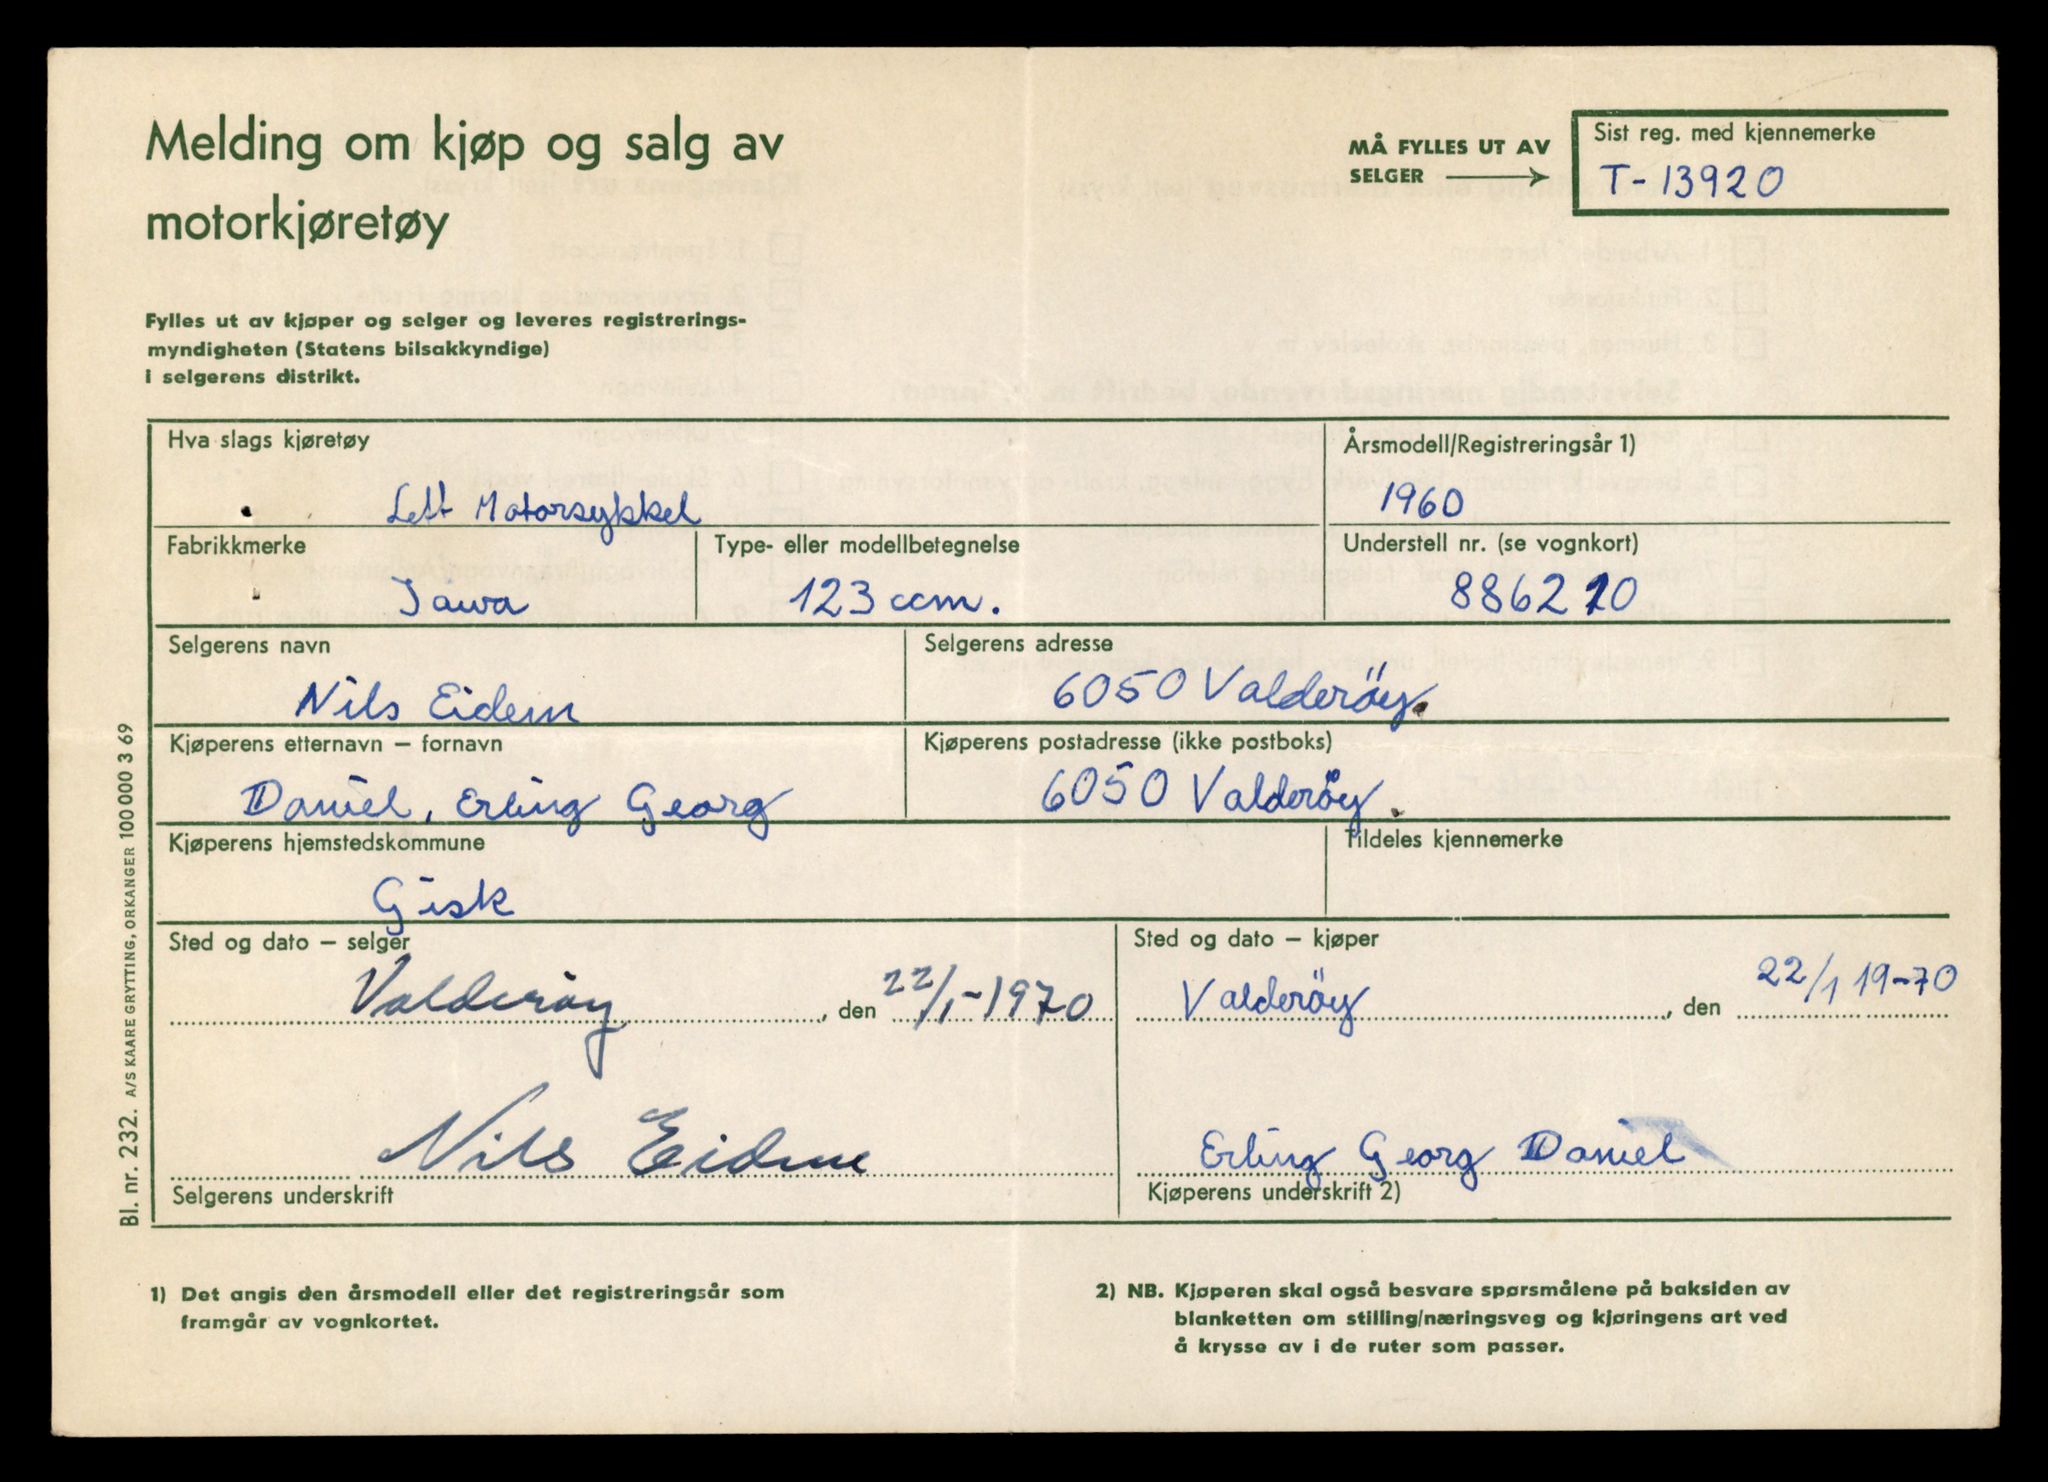 Melding om kjøp og salg av
motorkjøretøy
MÅ FYLLES UT AV
SELGER
Sist reg. med kjennemerke
T-13920
Fylles ut av kjøper og selger og leveres registrerings-
myndigheten (Statens bilsakkyndige)
i selgerens distrikt.
Hva slags kjøretøy
Lett Motorsykkel
Årsmodell/Registreringsår 1)
1960
Fabrikkmerke
Jawa
Type- eller modellbetegnelse
123 ccm.
Understell nr. (se vognkort)
886210
Selgerens navn
Nils Eidem
Selgerens adresse
6050 Valderöy.
Kjøperens etternavn – fornavn
Daniel, Erling Georg
Kjøperens postadresse (ikke postboks)
6050 Valderöy.
Kjøperens hjemstedskommune
Gisk
Tildeles kjennemerke
Sted og dato – selger
Valderöy, den 22/1-1970
Sted og dato – kjøper
Valderöy, den 22/1 19-70
Nils Eidem
Selgerens underskrift
Erling Georg Daniel
Kjøperens underskrift 2)
1) Det angis den årsmodell eller det registreringsår som
framgår av vognkortet.
2) NB. Kjøperen skal også besvare spørsmålene på baksiden av
blanketten om stilling/næringsveg og kjøringens art ved
å krysse av i de ruter som passer.
Bl. nr. 232. A/S KAARE GRYTTING, ORKANGER 100 000 3 69